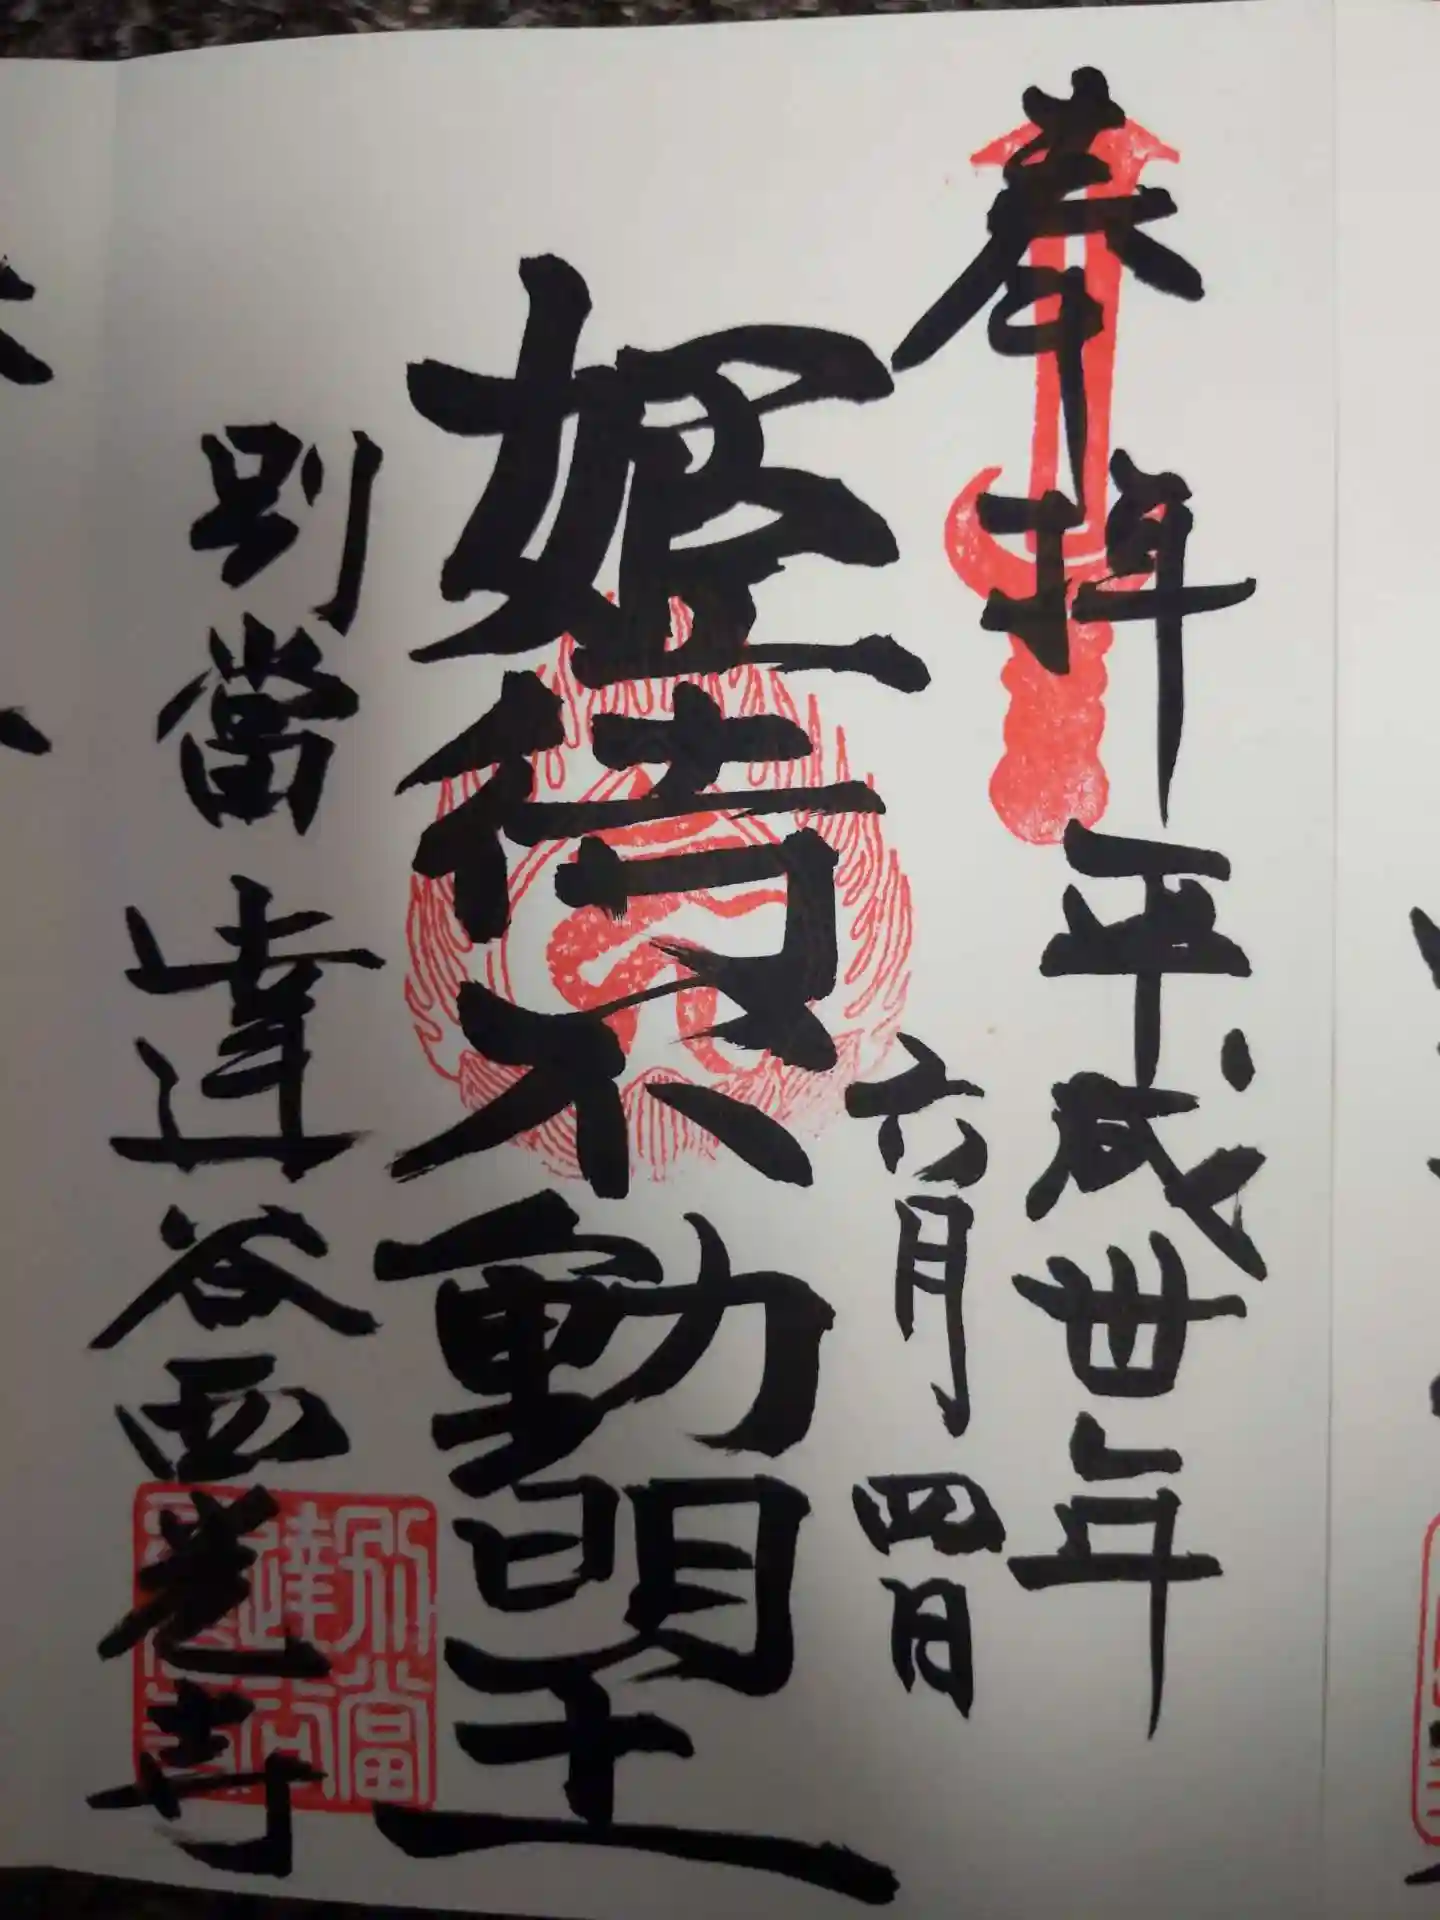 奉拝
平成卅年
六月四日
姫待不動明王
別當
達谷西光寺
別當
達谷